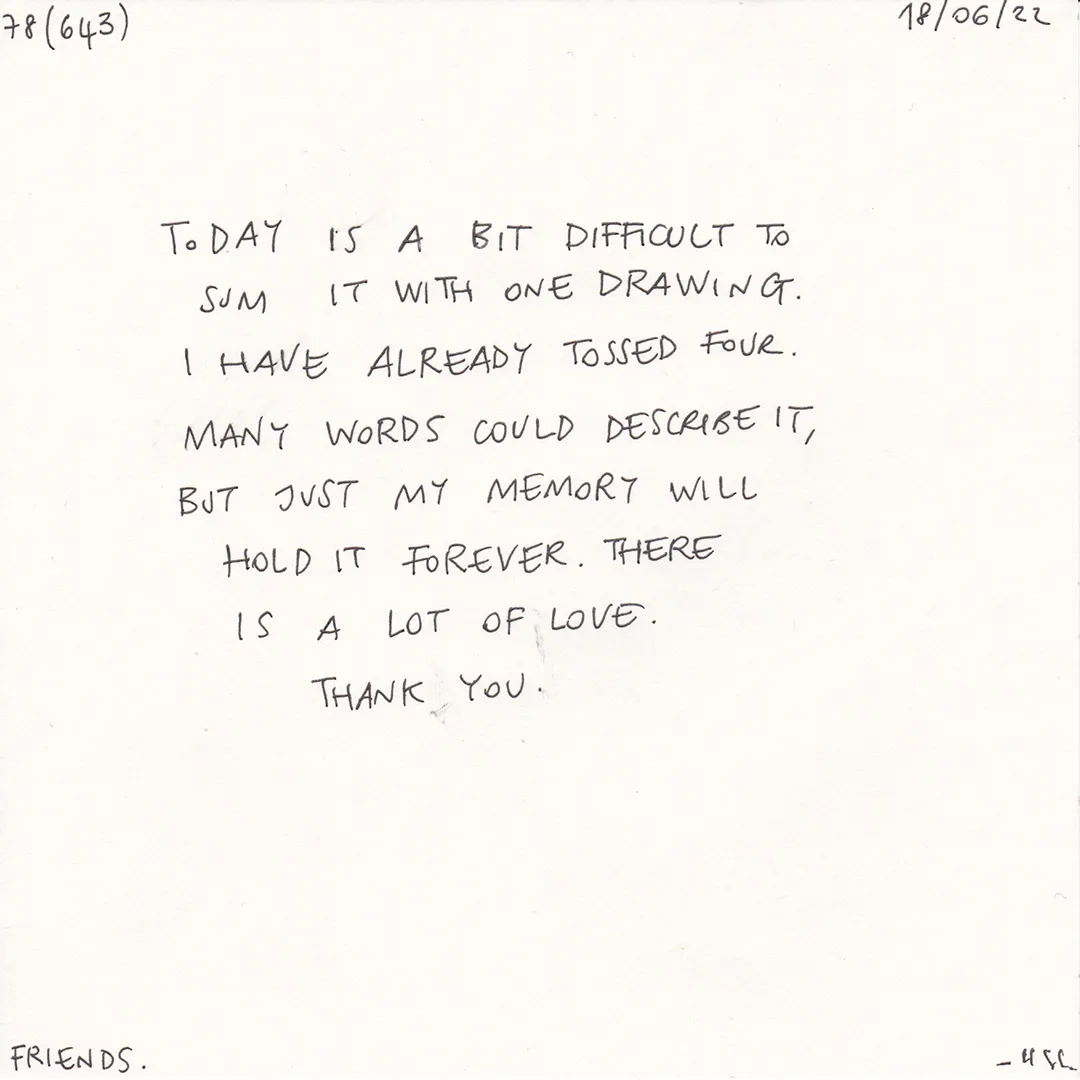 78(643)
18/06/22
TODAY IS A BIT DIFFICULT TO
SUM IT WITH ONE DRAWING.
I HAVE ALREADY TOSSED FOUR.
MANY WORDS COULD DESCRIBE IT,
BUT JUST MY MEMORY WILL
HOLD IT FOREVER. THERE
IS A LOT OF LOVE.
THANK YOU.
FRIENDS.